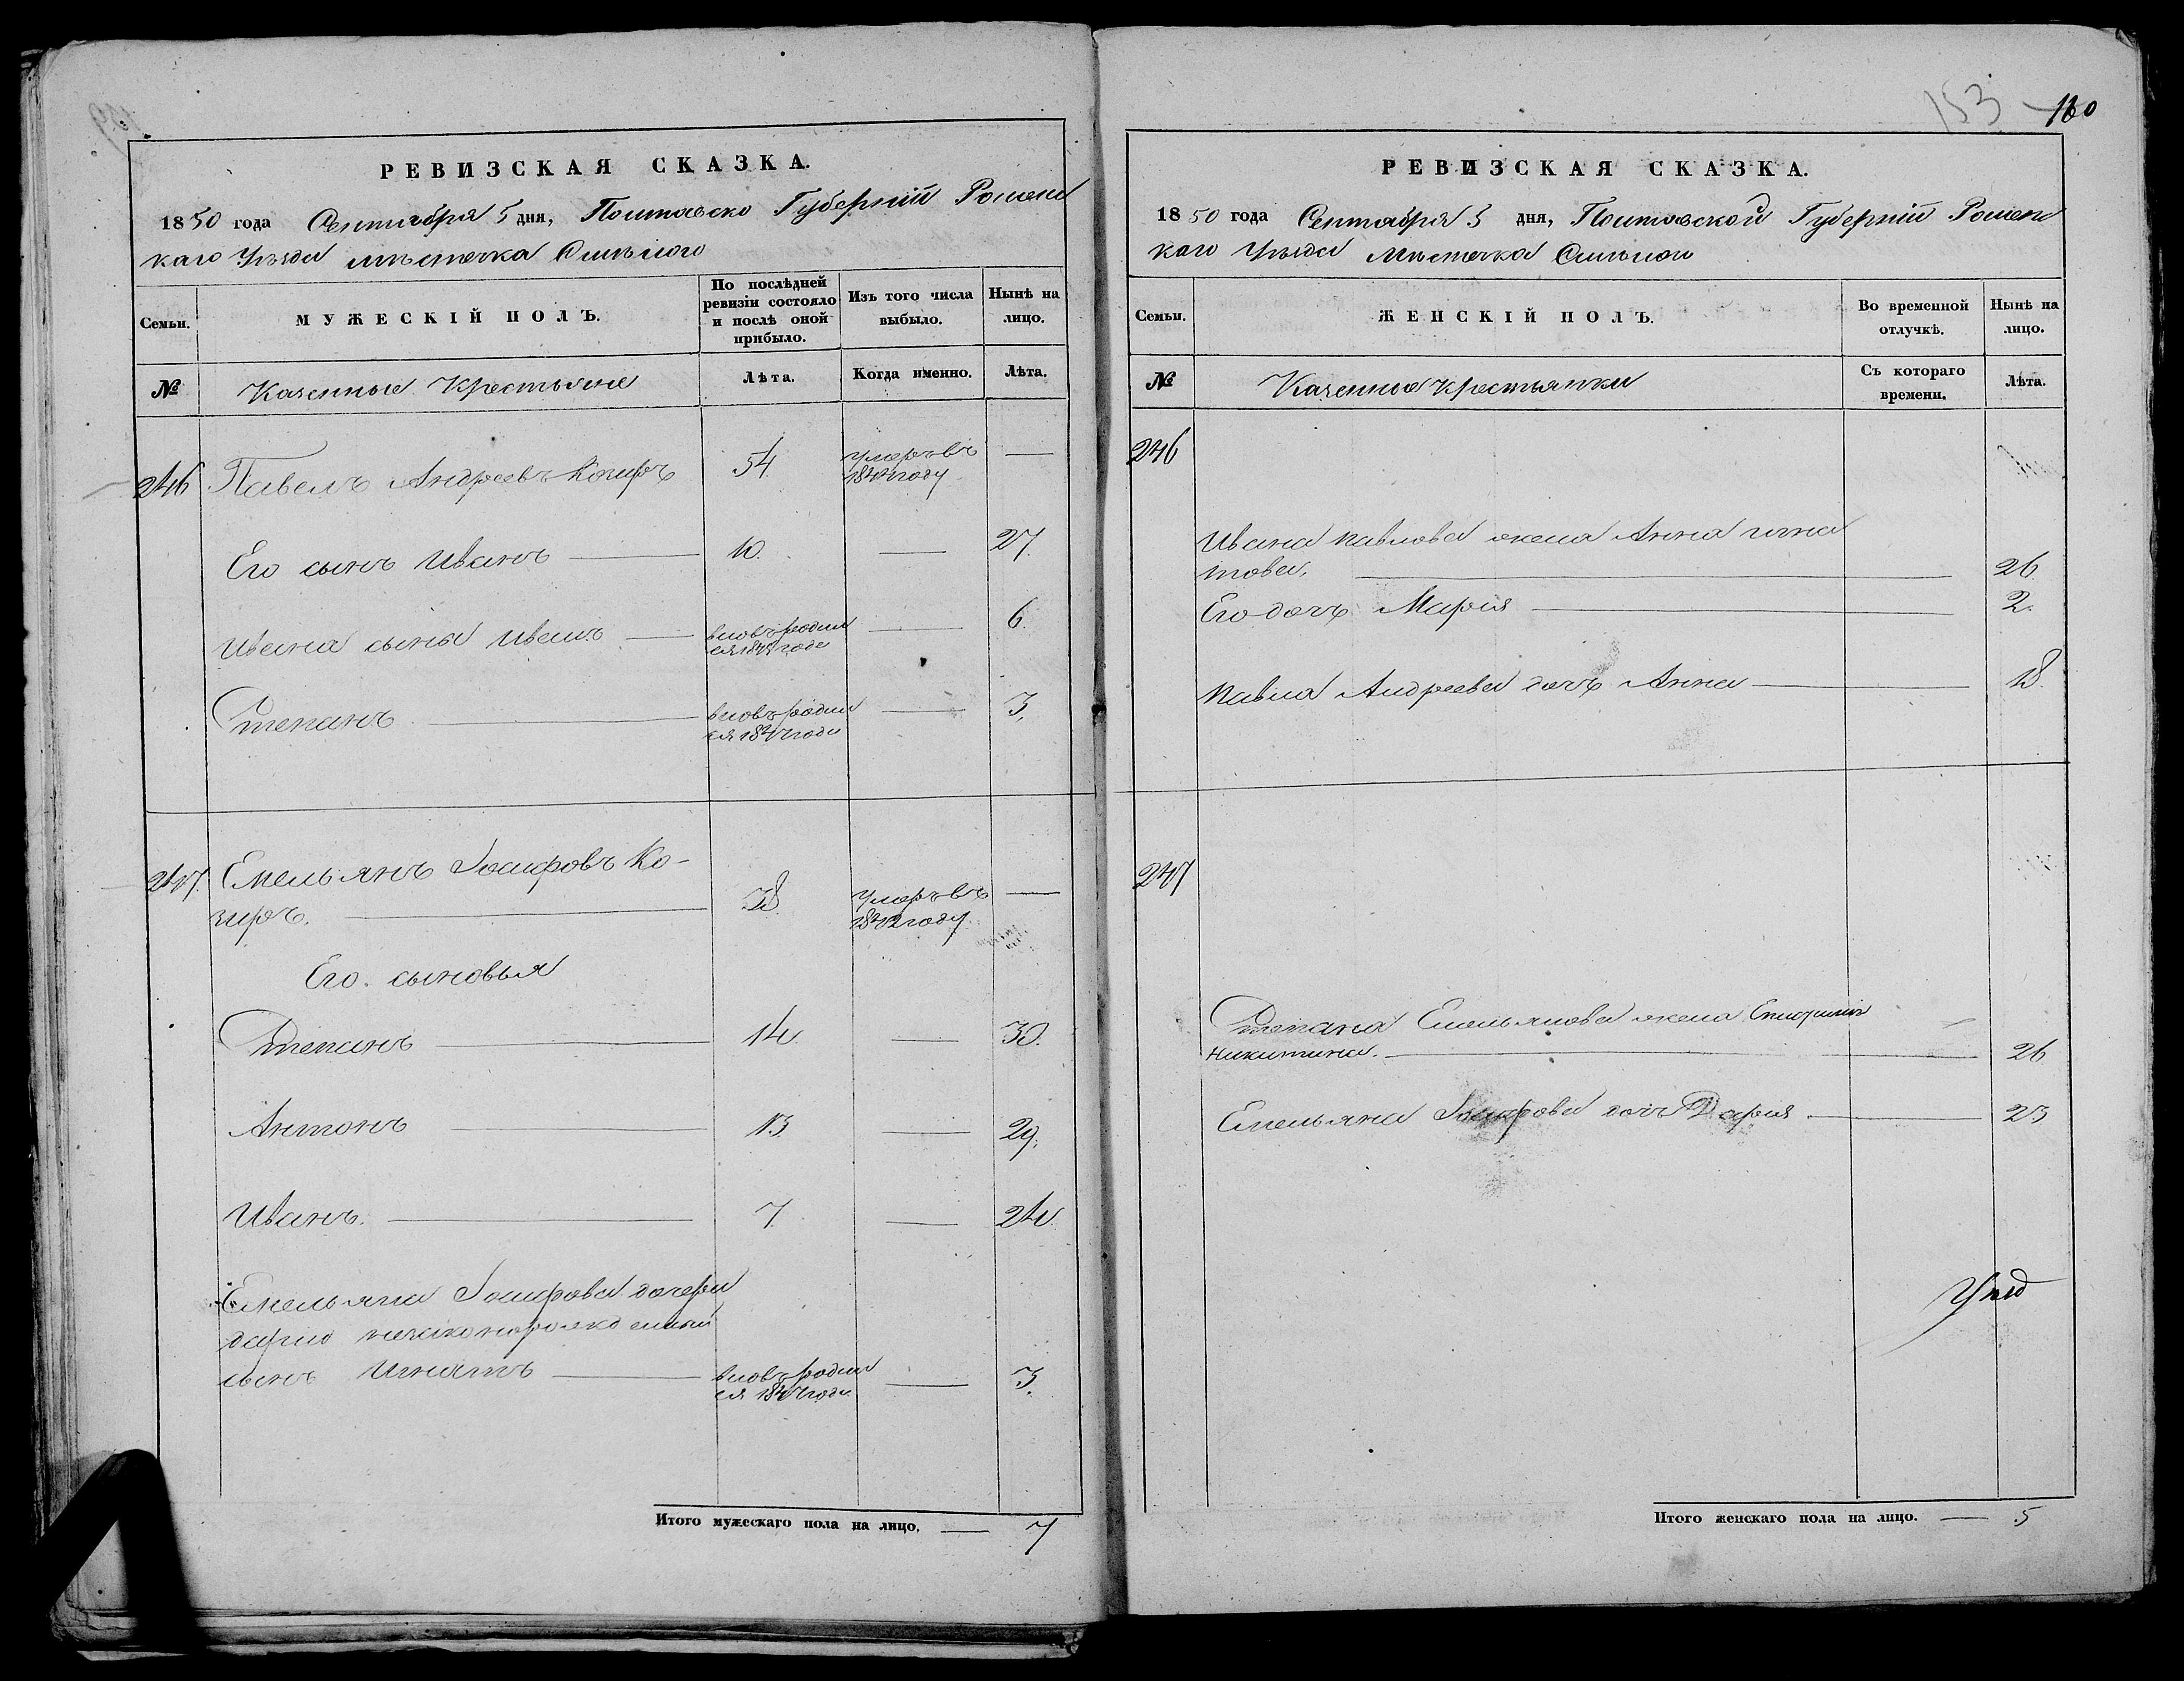 РЕВИЗСКАЯ СКАЗКА.
1850 года Сентября 5 дня, Полтавско Губерніи Роменс
каго Уезда местечка Смелого
Семьи.
МУЖЕСКІЙ ПОЛЪ.
По послѣдней
ревизіи состояло
и послѣ оной
прибыло.
Изъ того числа
выбыло.
Нынѣ на
лицо.
№
Казенные Крестьяне
Лѣта.
Когда именно.
Лѣта.
246 Павелъ Андреевъ Козиръ 54 умеръ въ —
году
Его сынъ Иванъ — 10. — 27.
Ивана сынъ Иванъ — вновь родил — 6.
ся года
Степанъ — вновь родил — 3.
ся 1847 года
247. Емельянъ Іосифовъ Ко-
зиръ. — 38. умеръ въ —
1842 году
Его сыновья
Степанъ — 14 — 30.
Антонъ — 13. — 29.
Иванъ. — 7. — 24.
Емельяна Іосифова дочери
дарии незаконорожденный
сынъ Игнатъ — вновь родил — 3.
ся 1847 года
Итого мужескаго пола на лицо. — 7
153 160
РЕВИЗСКАЯ СКАЗКА.
1850 года Сентября 5 дня, Полтавской Губерніи Роменс
каго Уезда Местечка Смелого
Семьи.
ЖЕНСКІЙ ПОЛЪ.
Во временной
отлучкѣ.
Нынѣ на
лицо.
№
Казенные крестьянки
Съ котораго
времени.
Лѣта.
246
Ивана павлова жена Анна игна
това. — 26.
Его дочъ Марія — 2.
Павла Андреева дочъ Анна — 18.
247
Степана Емельянова жена
никитина. — 26
Емельяна Іосифова дочъ Дарія. — 23
Итого женскаго пола на лицо. — 5